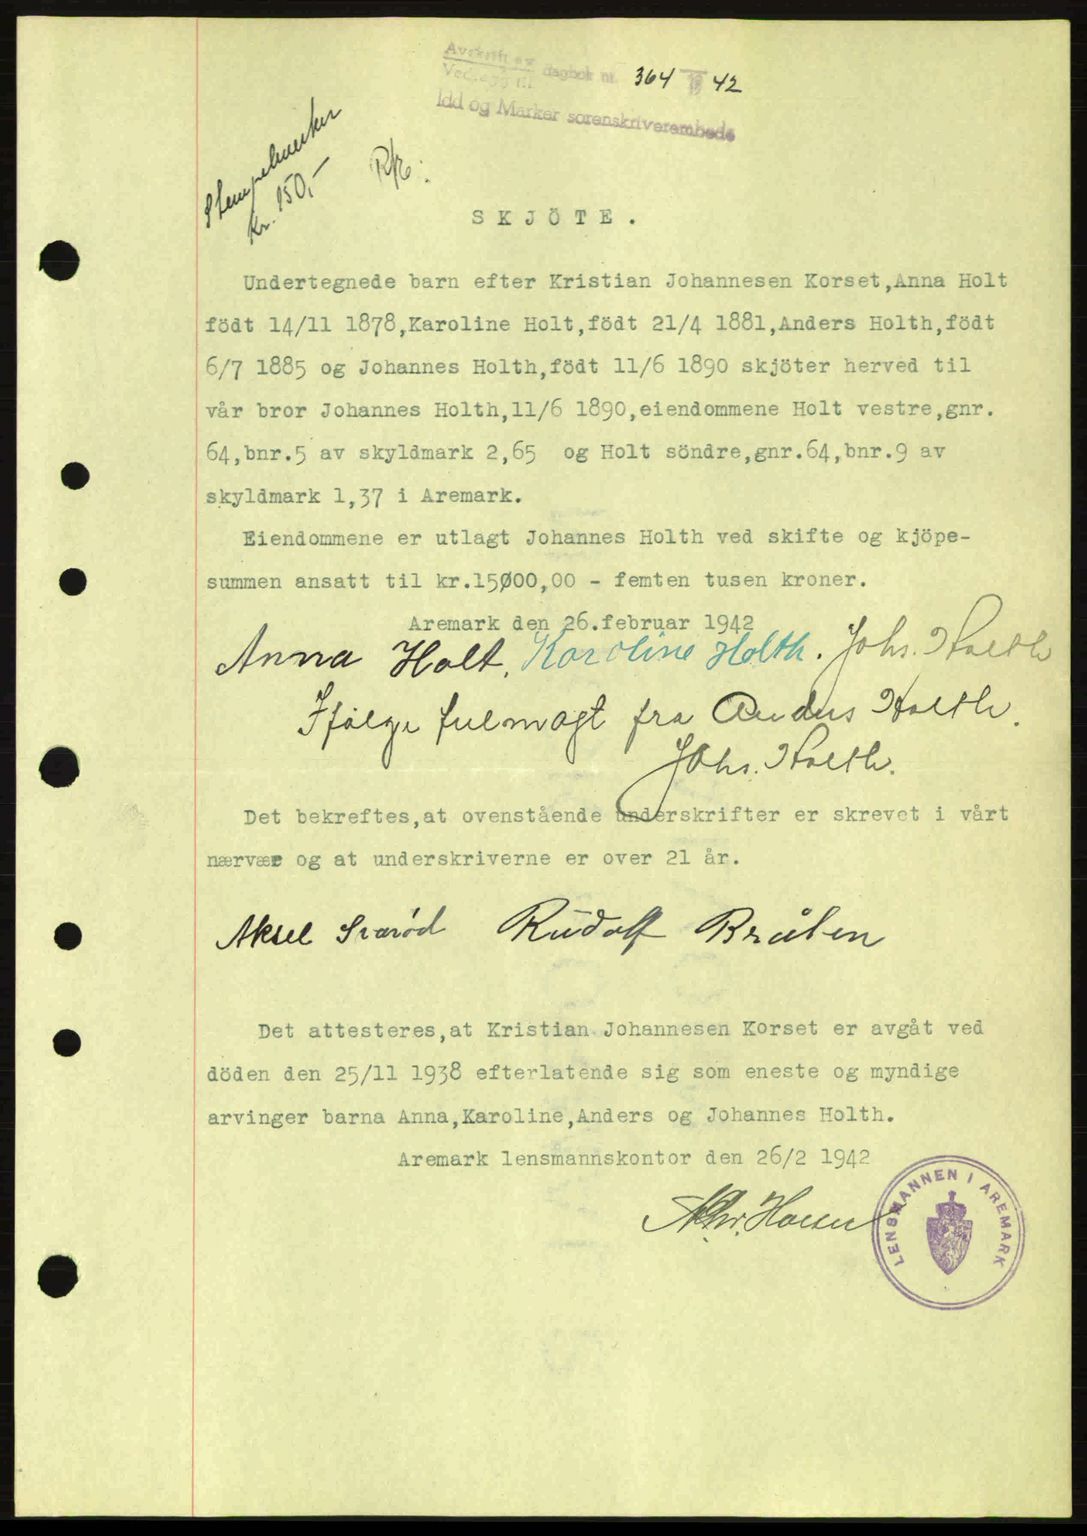 Avskrift av
Vedlegg til dagbok nr. 364 19 42
Idd og Marker sorenskriverembede
Stempelmerker
kr. 150,-
S K J Ö T E .
Undertegnede barn efter Kristian Johannesen Korset,Anna Holt
födt 14/11 1878,Karoline Holt,födt 21/4 1881,Anders Holth,födt
6/7 1885 og Johannes Holth,födt 11/6 1890 skjöter herved til
vår bror Johannes Holth,11/6 1890,eiendommene Holt vestre,gnr.
64,bnr.5 av skyldmark 2,65 og Holt söndre,gnr.64,bnr.9 av
skyldmark 1,37 i Aremark.
Eiendommene er utlagt Johannes Holth ved skifte og kjöpe-
summen ansatt til kr.15000,00 - femten tusen kroner.
Aremark den 26.februar 1942
Anna Holt. Karoline Holth. Johs. Holth
Ifølge fulmagt fra Anders Holth.
Johs. Holth.
Det bekreftes,at ovenstående underskrifter er skrevet i vårt
nærvær og at underskriverne er over 21 år.
Aksel Svarød Rudolf Bråten
Det attesteres,at Kristian Johannesen Korset er avgåt ved
döden den 25/11 1938 efterlatende sig som eneste og myndige
arvinger barna Anna,Karoline,Anders og Johannes Holth.
Aremark lensmannskontor den 26/2 1942
LENSMANNEN I AREMARK